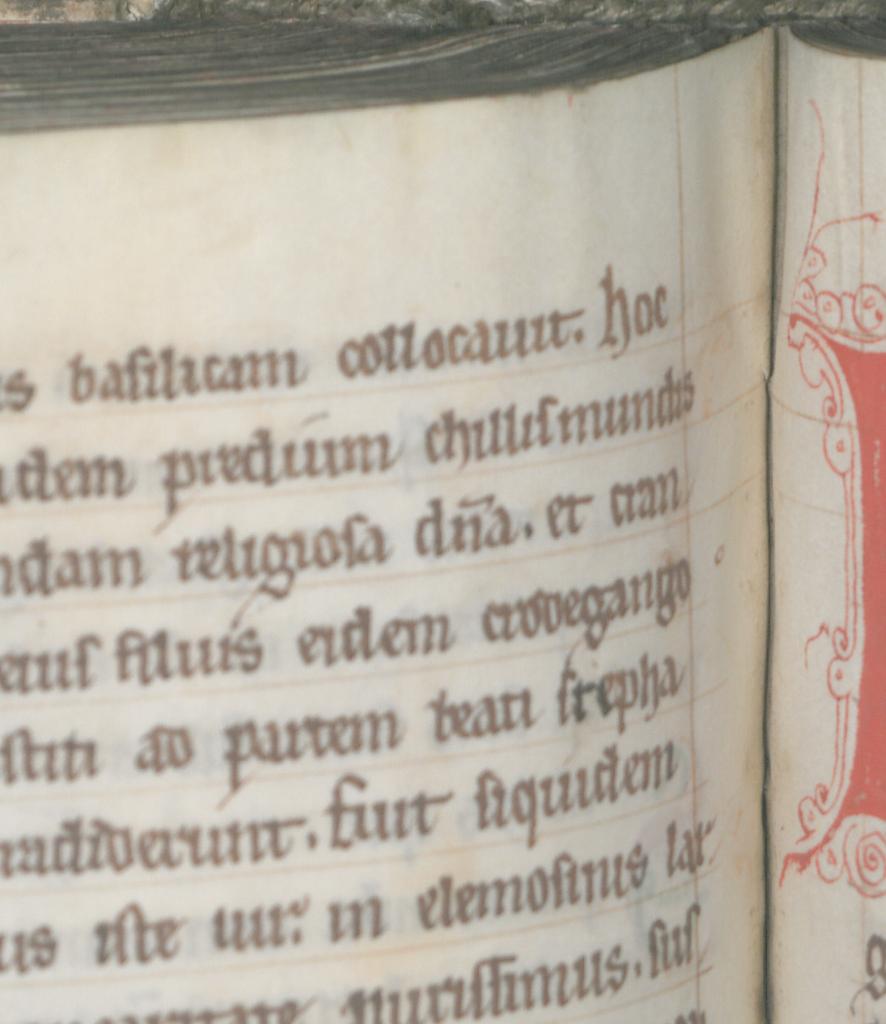 us basilicam collocauit. hoc
idem predium chillismundus
ndam religiosa dn̄a. et cran
etus filuis eidem crodegango
stiti ad partem beati stepha
radiderunt. fuit siquidem
us iste uir: in elemosinis lar
caritate purissimus. sus